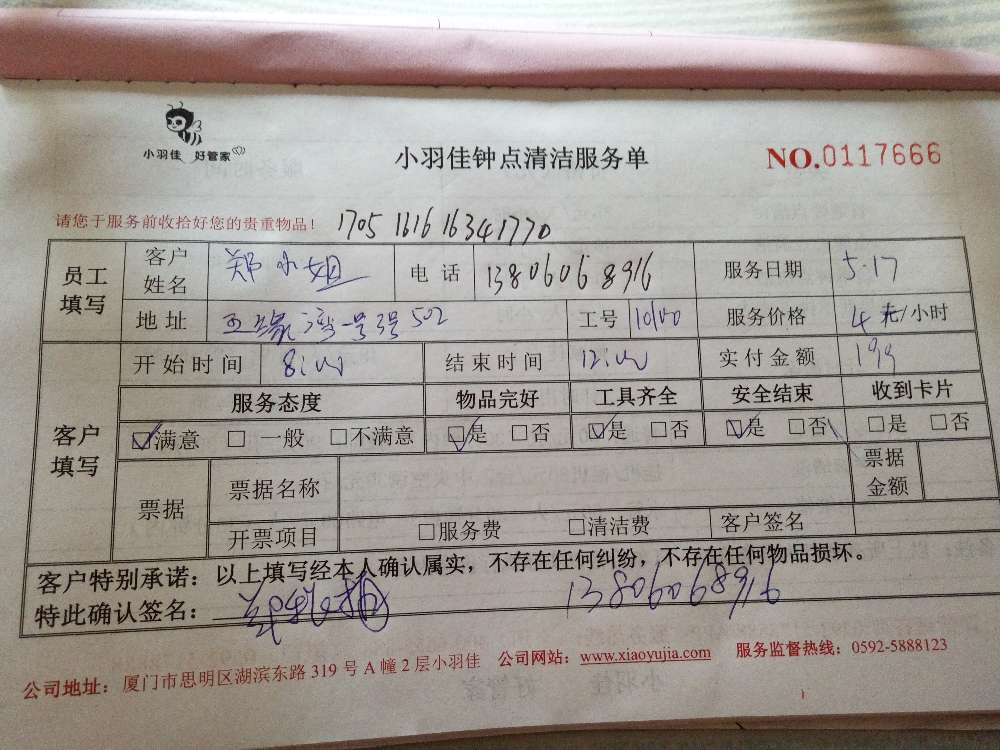 小羽佳 好管家
小羽佳钟点清洁服务单
NO.0117666
请您于服务前收拾好您的贵重物品！ 1705 1616 16341770
员工填写 客户姓名 郑小姐 电话 13806068916 服务日期 5.17
地址 五缘湾一号3号502 工号 服务价格 4 元/小时
客户填写 开始时间 8:00 结束时间 12:00 实付金额 199
服务态度 物品完好 工具齐全 安全结束 收到卡片
☑满意 □一般 □不满意 ☑是 □否 ☑是 □否 ☑是 □否 □是 □否
票据 票据名称 票据金额
开票项目 □服务费 □清洁费 客户签名
客户特别承诺：以上填写经本人确认属实，不存在任何纠纷，不存在任何物品损坏。
特此确认签名： 13806068916
公司地址：厦门市思明区湖滨东路 319 号 A 幢 2 层小羽佳 公司网站：www.xiaoyujia.com 服务监督热线：0592-5888123